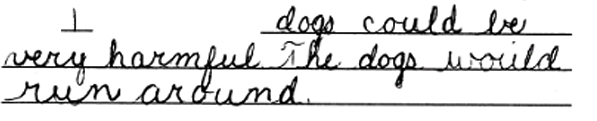 1 dogs could be
very harmful The dogs would
run around.